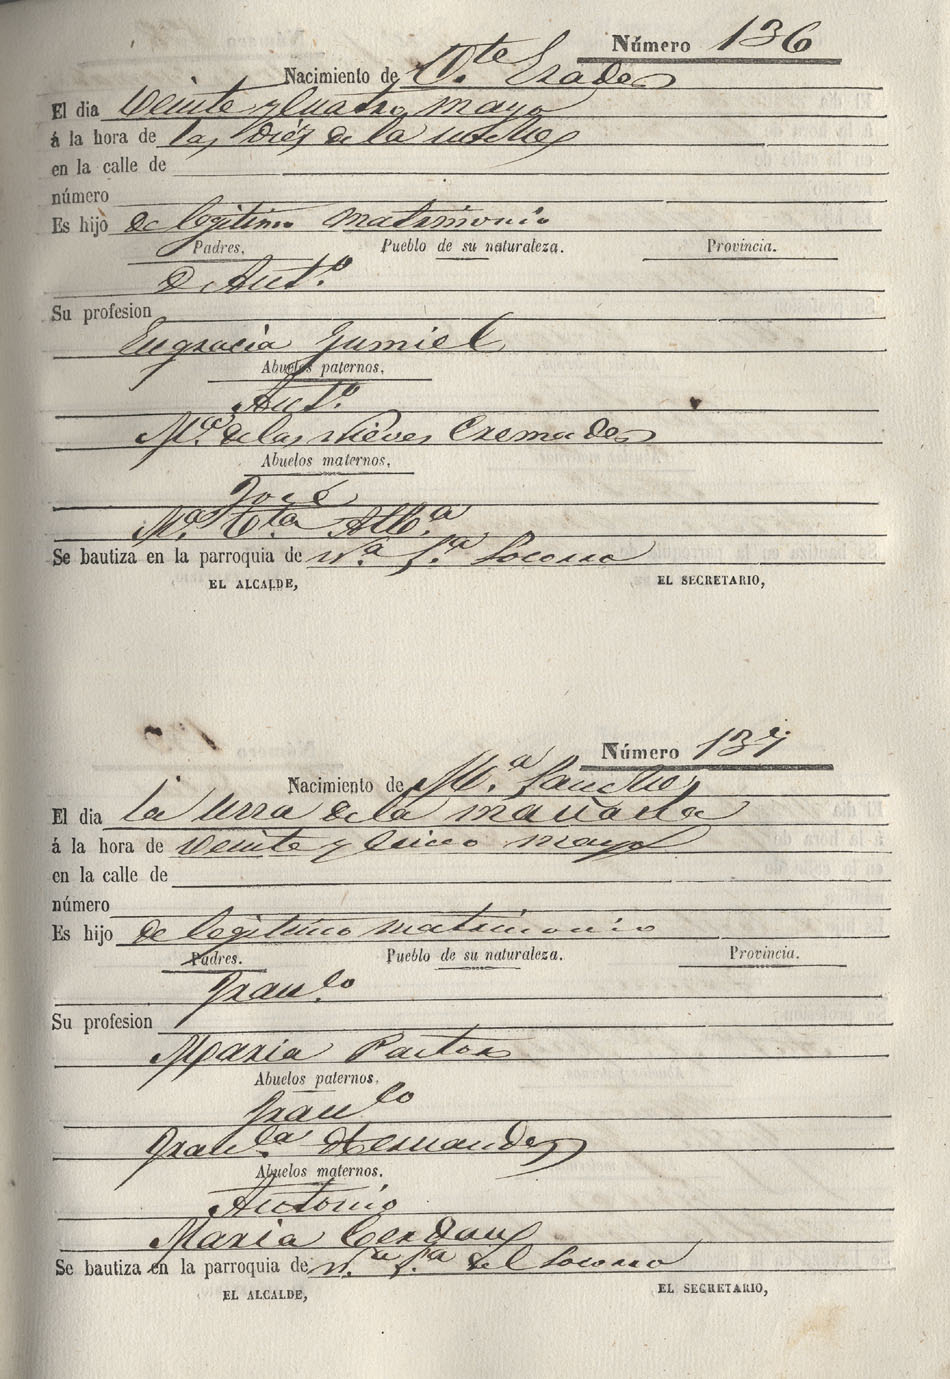 Número 136
Nacimiento de Vte Prades
El dia Veinte y Cuatro mayo
á la hora de las diez de la noche
en la calle de
número
Es hijo de legitimo matrimonio
Padres. Pueblo de su naturaleza. Provincia.
D Antº
Su profesion
Engracia Gumiel
Abuelos paternos.
Antº
Mª de las Nieves Cremades
Abuelos maternos.
José
Mª Alb.ª
Se bautiza en la parroquia de N.ª S.ª Socorro
EL ALCALDE, EL SECRETARIO,
Número 137
Nacimiento de M.ª Sanchez
El dia la una de la mañana
á la hora de Veinte y Cinco mayo
en la calle de
número
Es hijo de legitimo matrimonio
Padres. Pueblo de su naturaleza. Provincia.
Franco
Su profesion
Maria Pastor
Abuelos paternos.
Franco
Franca Hernandez
Abuelos maternos.
Antonio
Maria Cerdan
Se bautiza en la parroquia de N.ª S.ª del Socorro
EL ALCALDE, EL SECRETARIO,